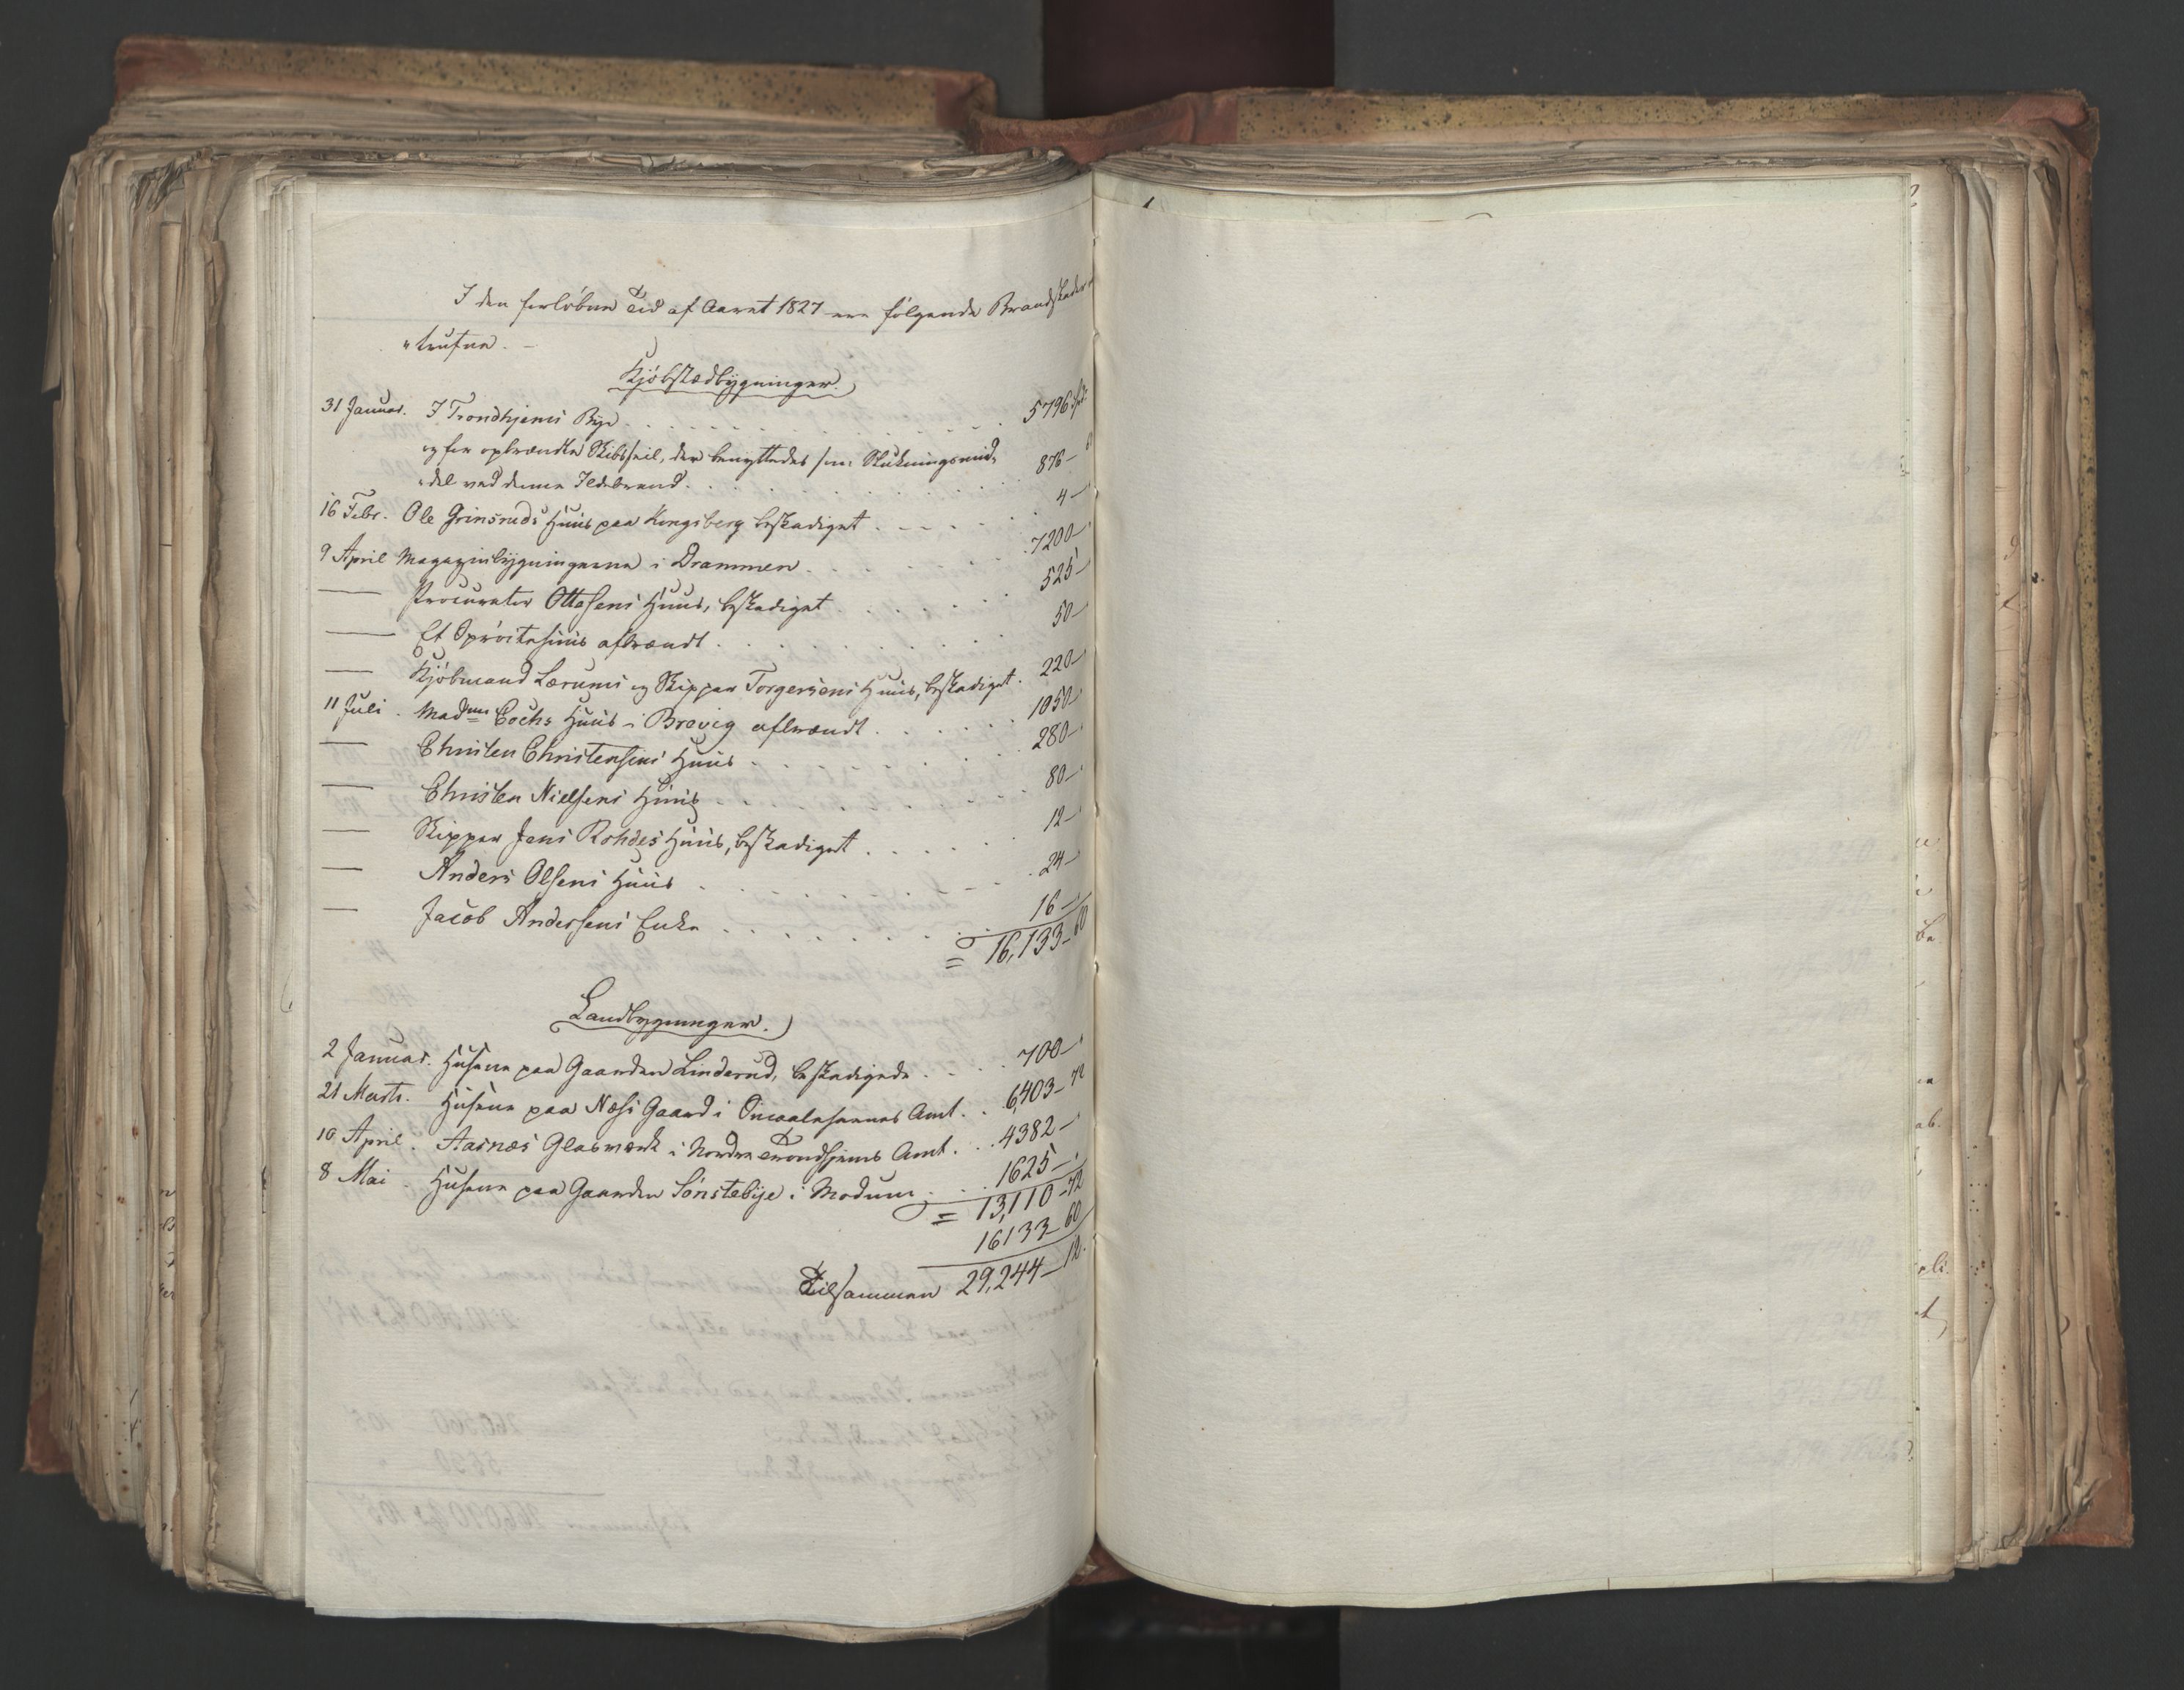 I den forløbne Tid af Aaret 1827 ere følgende Brandskader ind-
"trufne. –
Kjøbstædbygninger.
31 Januar. I Trondhjems Bye . . . . . 5796 Spd.
og for opbrændte Skibsseil, der benyttedes som Slukningsmid-
"del ved denne Ildebrand . . . . . 876 – 60
16 Febr. Ole Grinsruds Huus paa Kongsberg beskadiget . . . . 4 –
9 April Magazinbygningerne i Drammen . . . . 7200 –
— Procurator Ottesens Huus, beskadiget . . . . 525 –
— Et Sprøitehuus afbrændt . . . . 50 –
— Kjøbmand Lærums og Skipper Torgersens Huus, beskadiget . 220 –
11 Juli . Madme Cochs Huus i Brevig afbrændt . . . . 1050 –
— Christen Christensens Huus . . . . 280 –
— Christen Nielsens Huus . . . . 80 –
— Skipper Jens Rohdes Huus, beskadiget . . . . 12 –
— Anders Olsens Huus . . . . 24 –
— Jacob Andersens Enke . . . . 16 –
= 16,133 – 60
Landbygninger.
2 Januar. Husene paa Gaarden Linderud, beskadigede . . . 700 –
21 Marts. Husene paa Næs Gaard i Smaalehnenes Amt . . 6,403 – 72
10 April . Aasnæs Glasværk i Nordre Trondhjems Amt . . . 4382 –
8 Mai . Husene paa Gaarden Sønstebye i Modum . . . 1625 –
= 13,110 – 72
16133 – 60
Tilsammen 29,244 – 12.